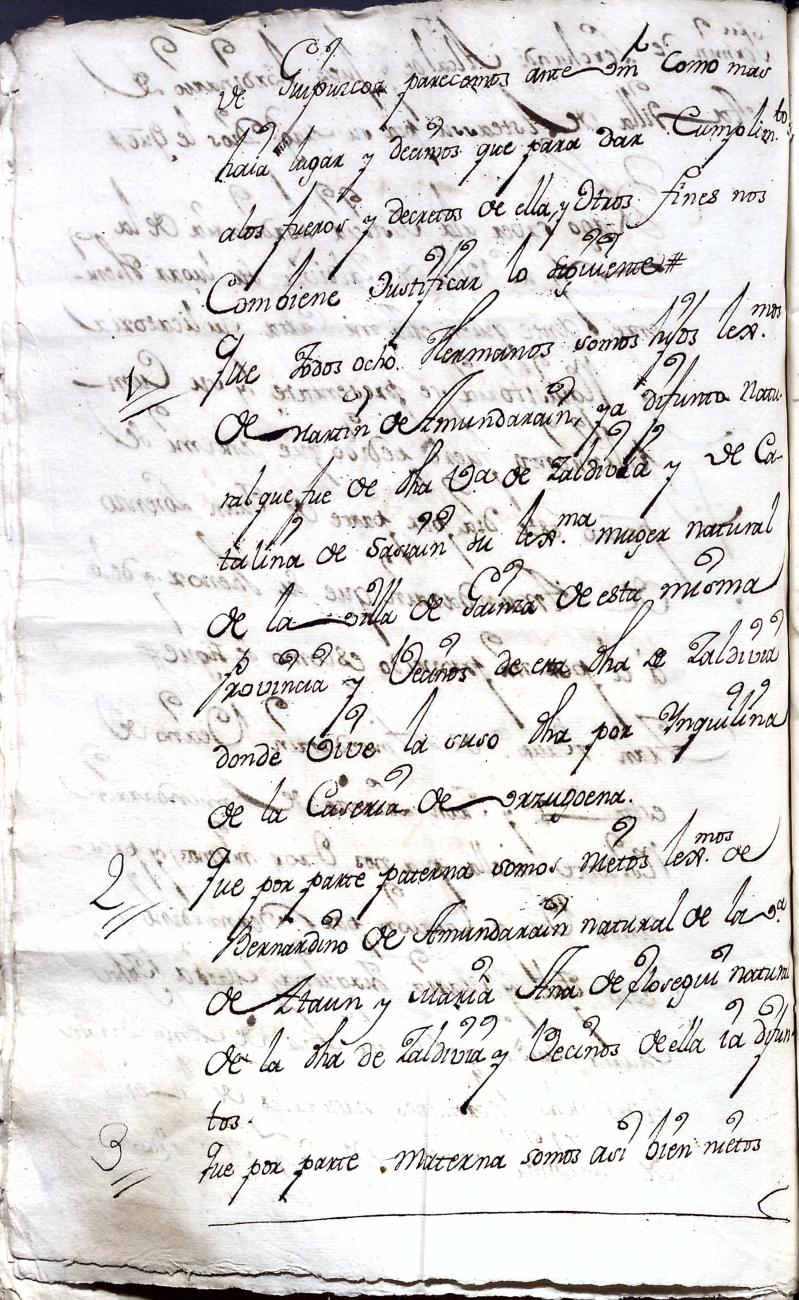 de Guipuzcoa parecemos ante Vm Como mas
haia lugar y decimos que para dar Cumplim.to
alos fueros y decretos de ella, y Otros fines nos
Combiene Justificar lo siguiente #
1 Que todos ocho Hermanos somos hijos lex.mos
de Martin de Amundarain, ya difunto Natu-
ral que fue de dha V.a de Zaldivia y de Ca-
talina de Sasiain su lex.ma muger natural
de la villa de Gainza de esta misma
Provincia y Vecinos de esta dha de Zaldivia
donde Vive la suso dha por Ynquilina
de la Caseria de Orzugoena.
2 Que por parte paterna somos nietos lex.mos de
Bernardino de Amundarain natural de la V.a
de Ataun y Maria Ana de floseguii natural
de la dha de Zaldivia y Vecinos de ella ia difun-
tos.
3 Que por parte Materna somos asi bien nietos